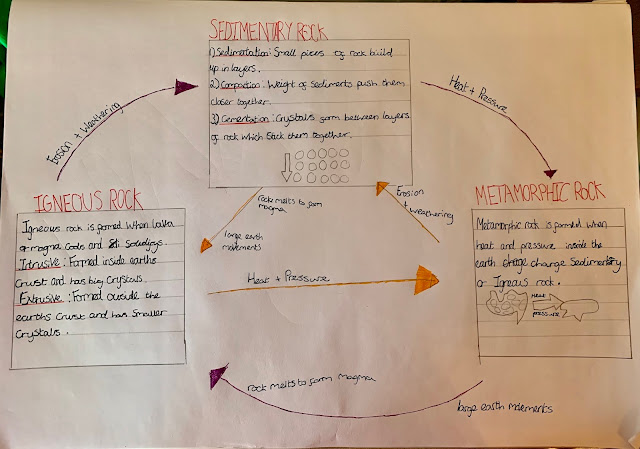 SEDIMENTARY ROCK
1) Sedimentation: Small pieces of rock build
up in layers.
2) Compaction: Weight of sediments push them
closer together.
3) Cementation: Crystals form between layers
of rock which stick them together.
Erosion + Weathering
Heat + Pressure
IGNEOUS ROCK
Igneous rock is formed when lava
or magma cools and solidifys.
Intrusive: Formed inside earths
crust and has big crystals.
Extrusive: Formed outside the
earths crust and has smaller
crystals.
rock melts to form
magma
large earth
movements
Erosion
+ weathering
Heat + Pressure
METAMORPHIC ROCK
Metamorphic rock is formed when
heat and pressure inside the
earth change sedimentary
or Igneous rock.
Heat
pressure
rock melts to form magma
large earth movements